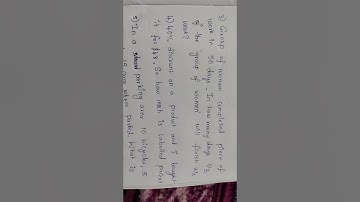 3) Group of women completed piece of
work in 56 days. In how many days 1/3
of the group of women will finish
work?
4) 40% discount on a product and I bought
it for $48. So how much is labelled price?
5) In a parking over 10 bicycles, 5
parked. What is